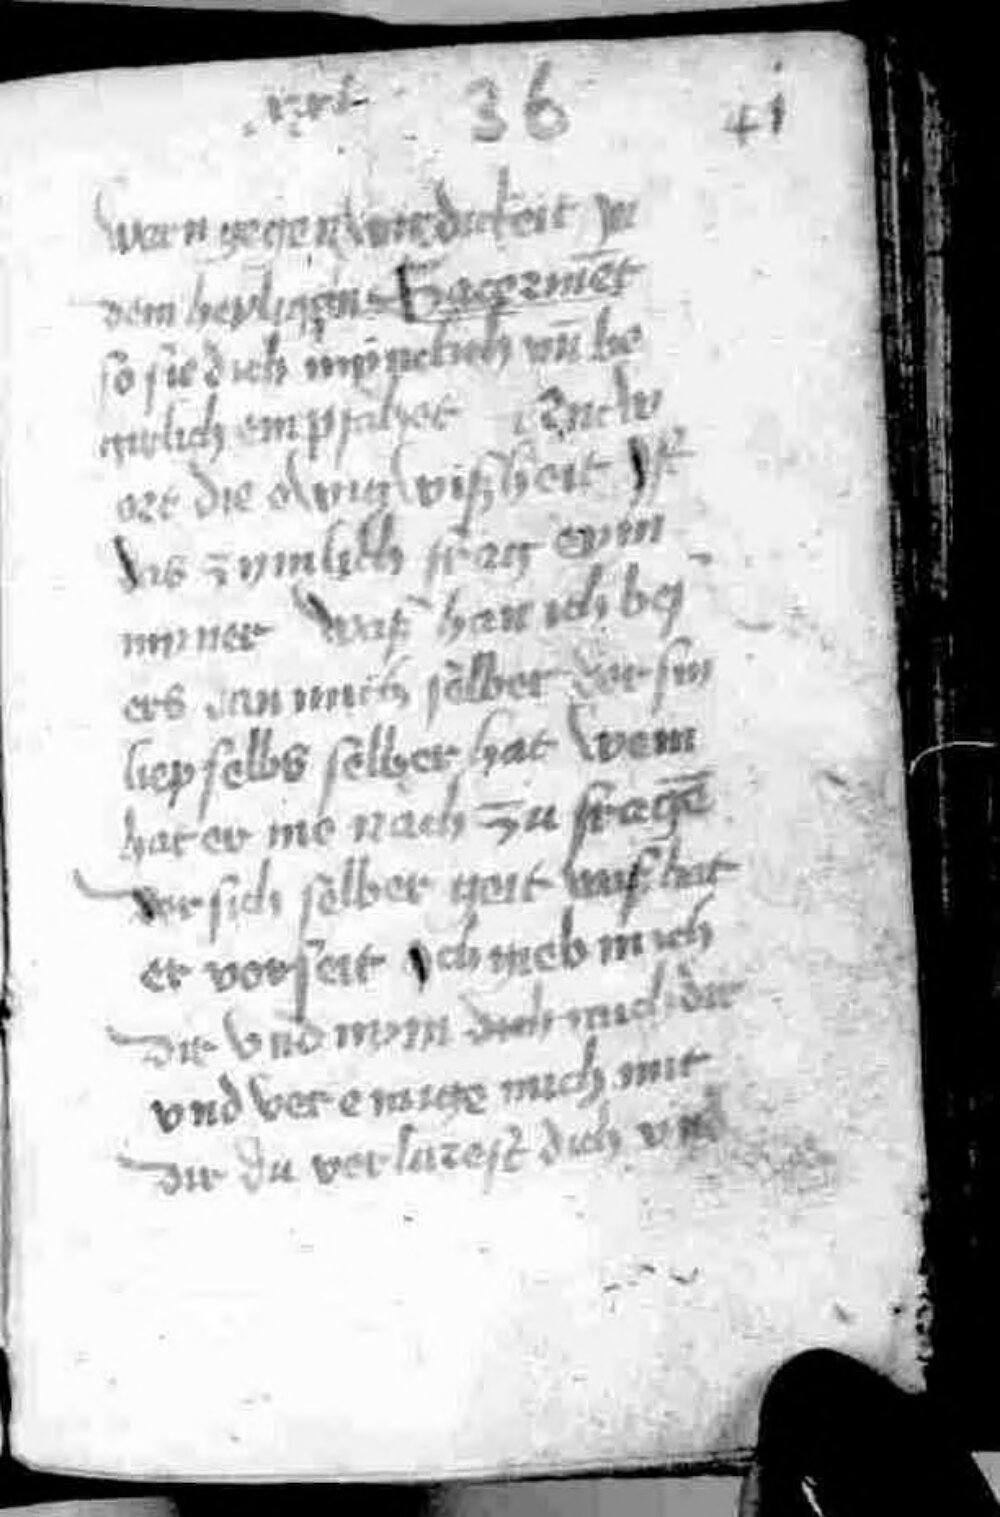 36 41
wern gegenwirdikeit In
dem heyligen Sacrament
so sie dich mynclich vn̄ be
girlich empfahet Antw
ort die ewig wißheit Ist
das zymlich frag eym
mynner waß han ich beß
ers dan mich selber der sin
liep selbs selber hat wem
hat er me nach zu fragē
der sich selber geit waß hat
er verseit Ich gieb mich
dir vnd nym dich mich dir
vnd vereinige mich mit
dir du verlurest dich vnd